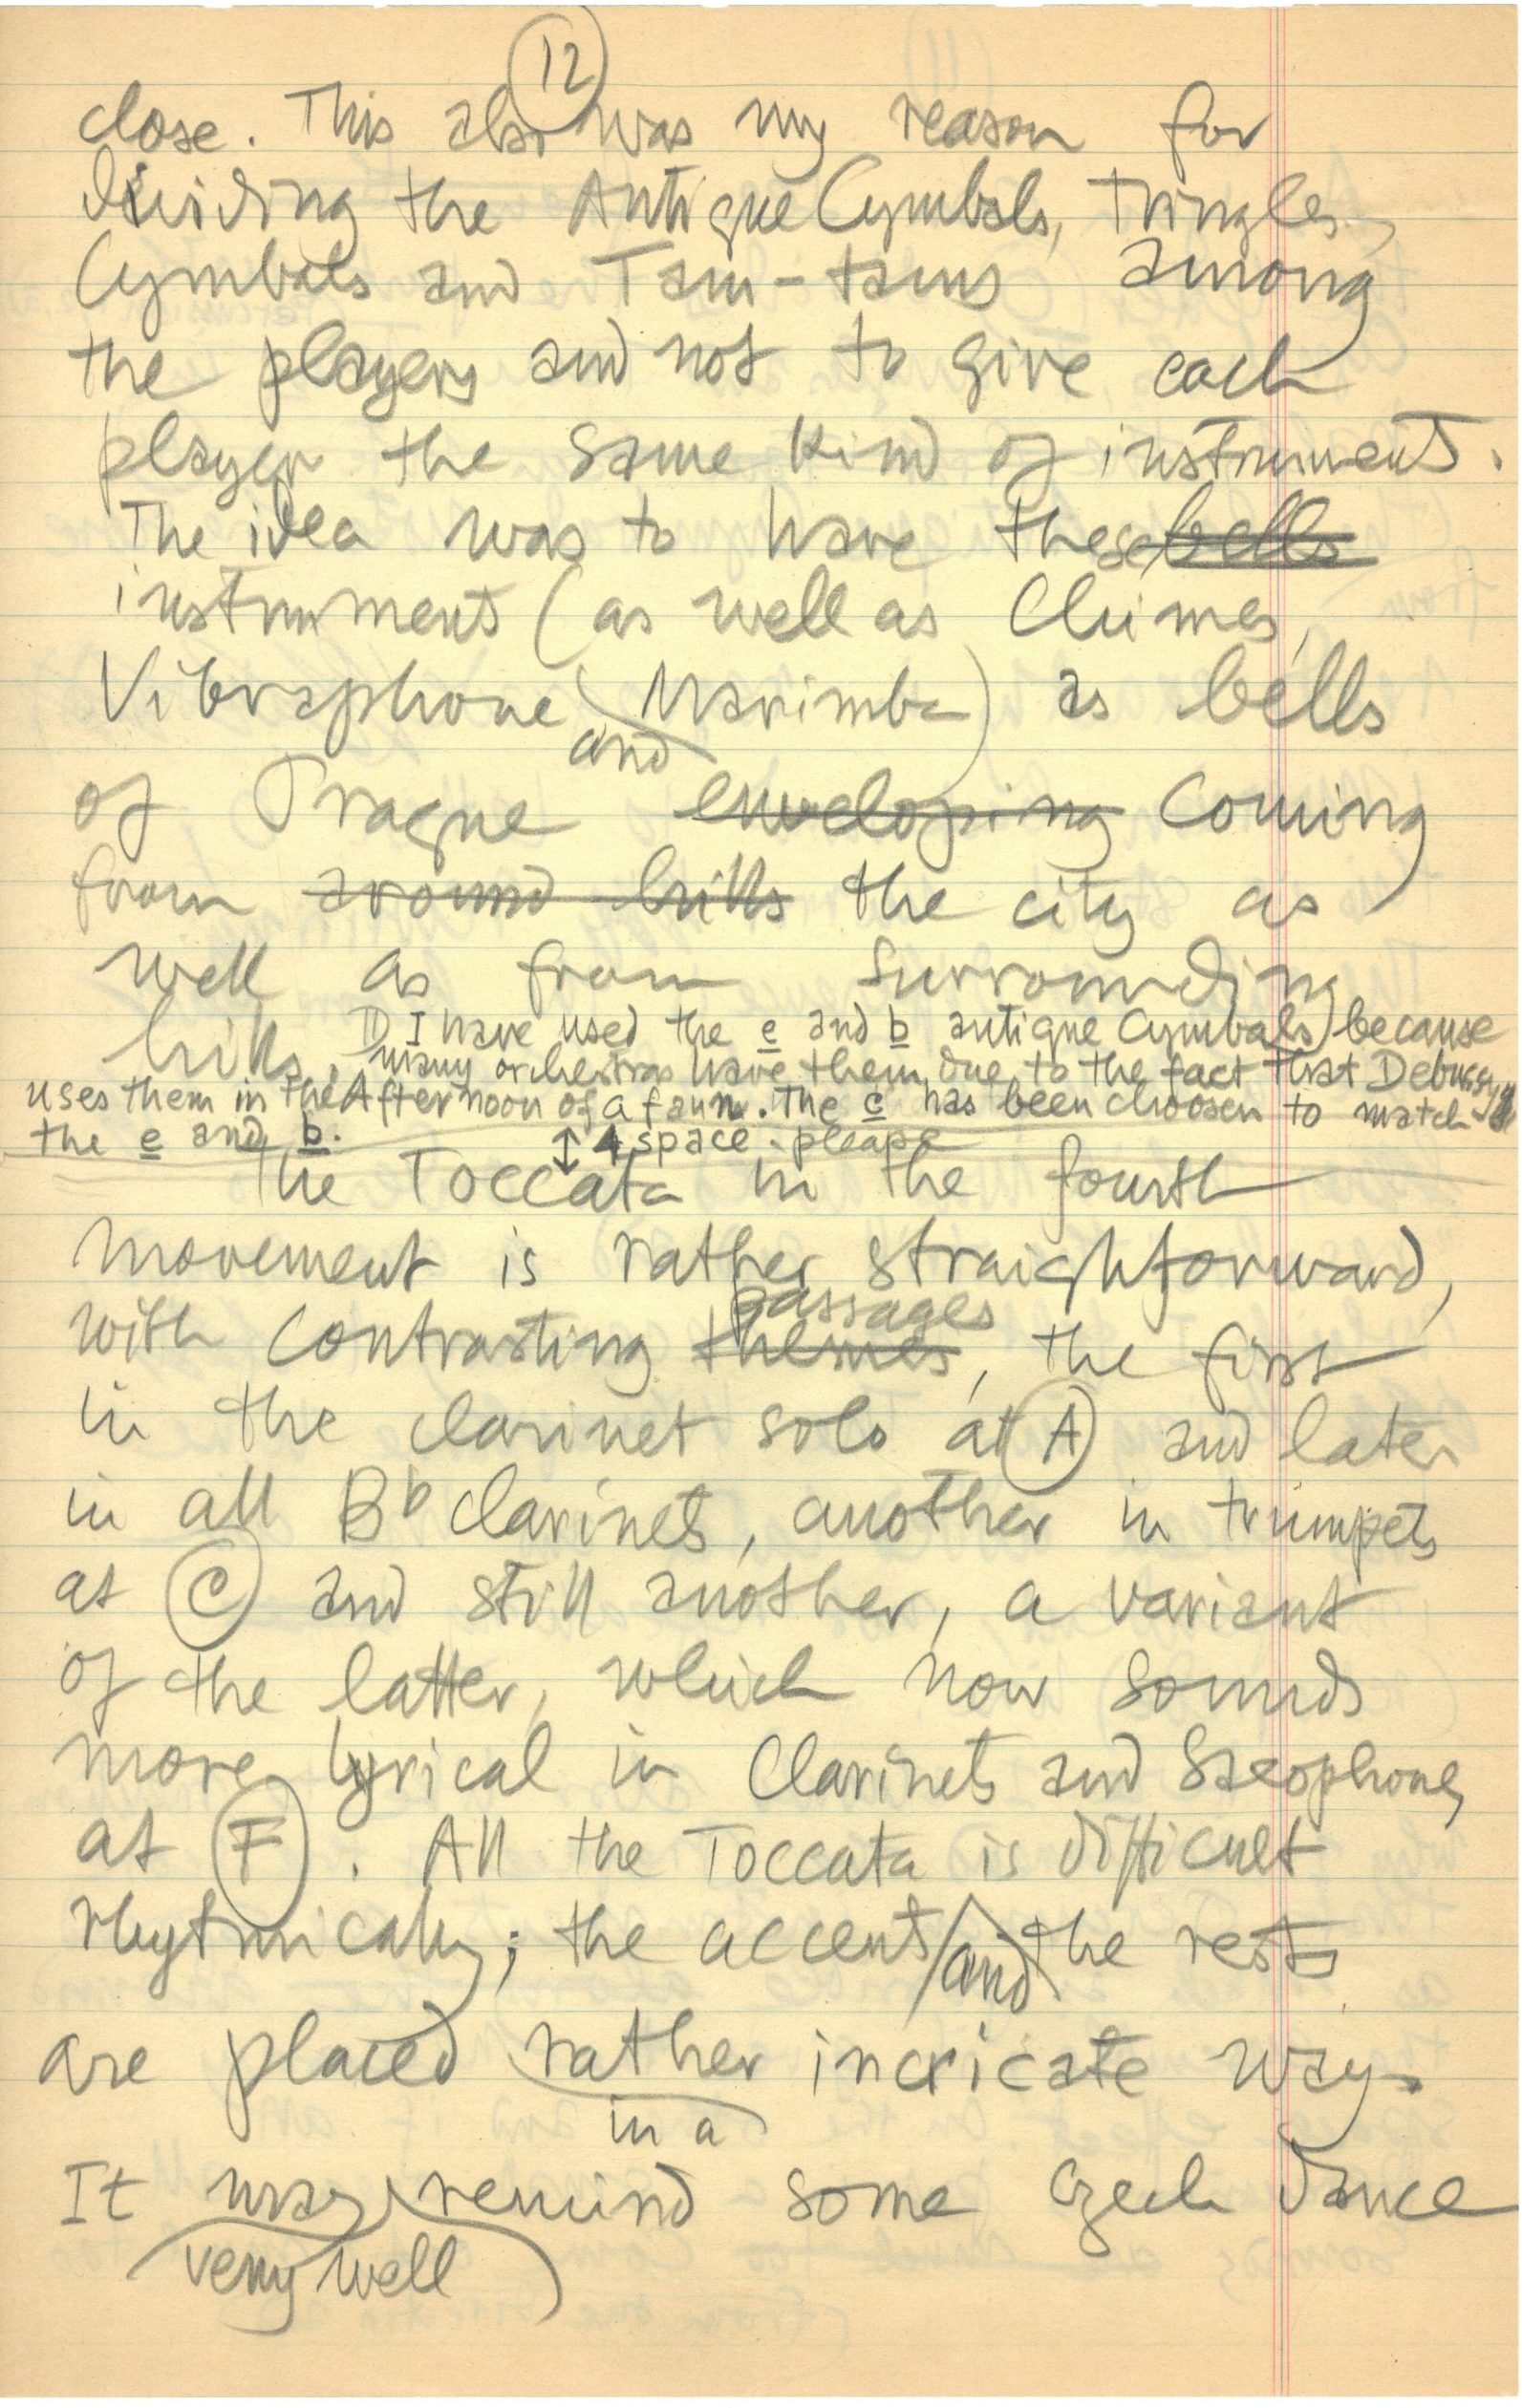 12
close. This also was my reason for
dividing the Antique Cymbals, Tringles,
Cymbals and Tam-tams among
the players and not to give each
player the same kind of instrument.
The idea was to have these bells
instruments (as well as Chimes,
Vibraphone and Marimba) as bells
of Prague enveloping coming
from around hills the city as
well as from surrounding
hills. I have used the e and b antique Cymbals) because
many orchestras have them due to the fact that Debussy
uses them in the Afternoon of a faun. The c has been choosen to match
the e and b.
4 space please
The Toccata in the fourth
movement is rather straightforward,
passages
with contrasting themes, the first
in the clarinet solo at A and later
in all Bb clarinets, another in trumpets
at C and still another, a variant
of the latter, which now sounds
more lyrical in Clarinets and Saxophones
at F. All the Toccata is difficult
rhytmically; the accents and the rests
are placed rather incricate way.
in a
It may remind some Czech dance
very well